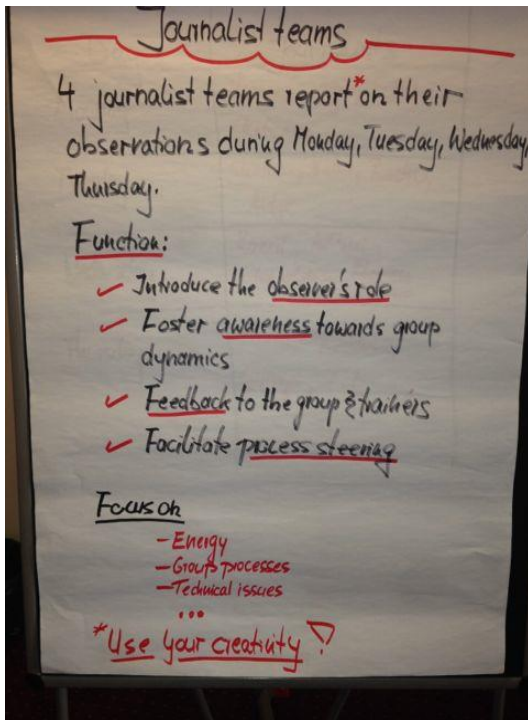 Journalist teams
4 journalist teams report* on their
observations during Monday, Tuesday, Wednesday,
Thursday.
Function:
✓ Introduce the observer's role
✓ Foster awareness towards group
dynamics
✓ Feedback to the group & trainers
✓ Facilitate process steering
Focus on
- Energy
- Group processes
- Technical issues
...
*Use your creativity!